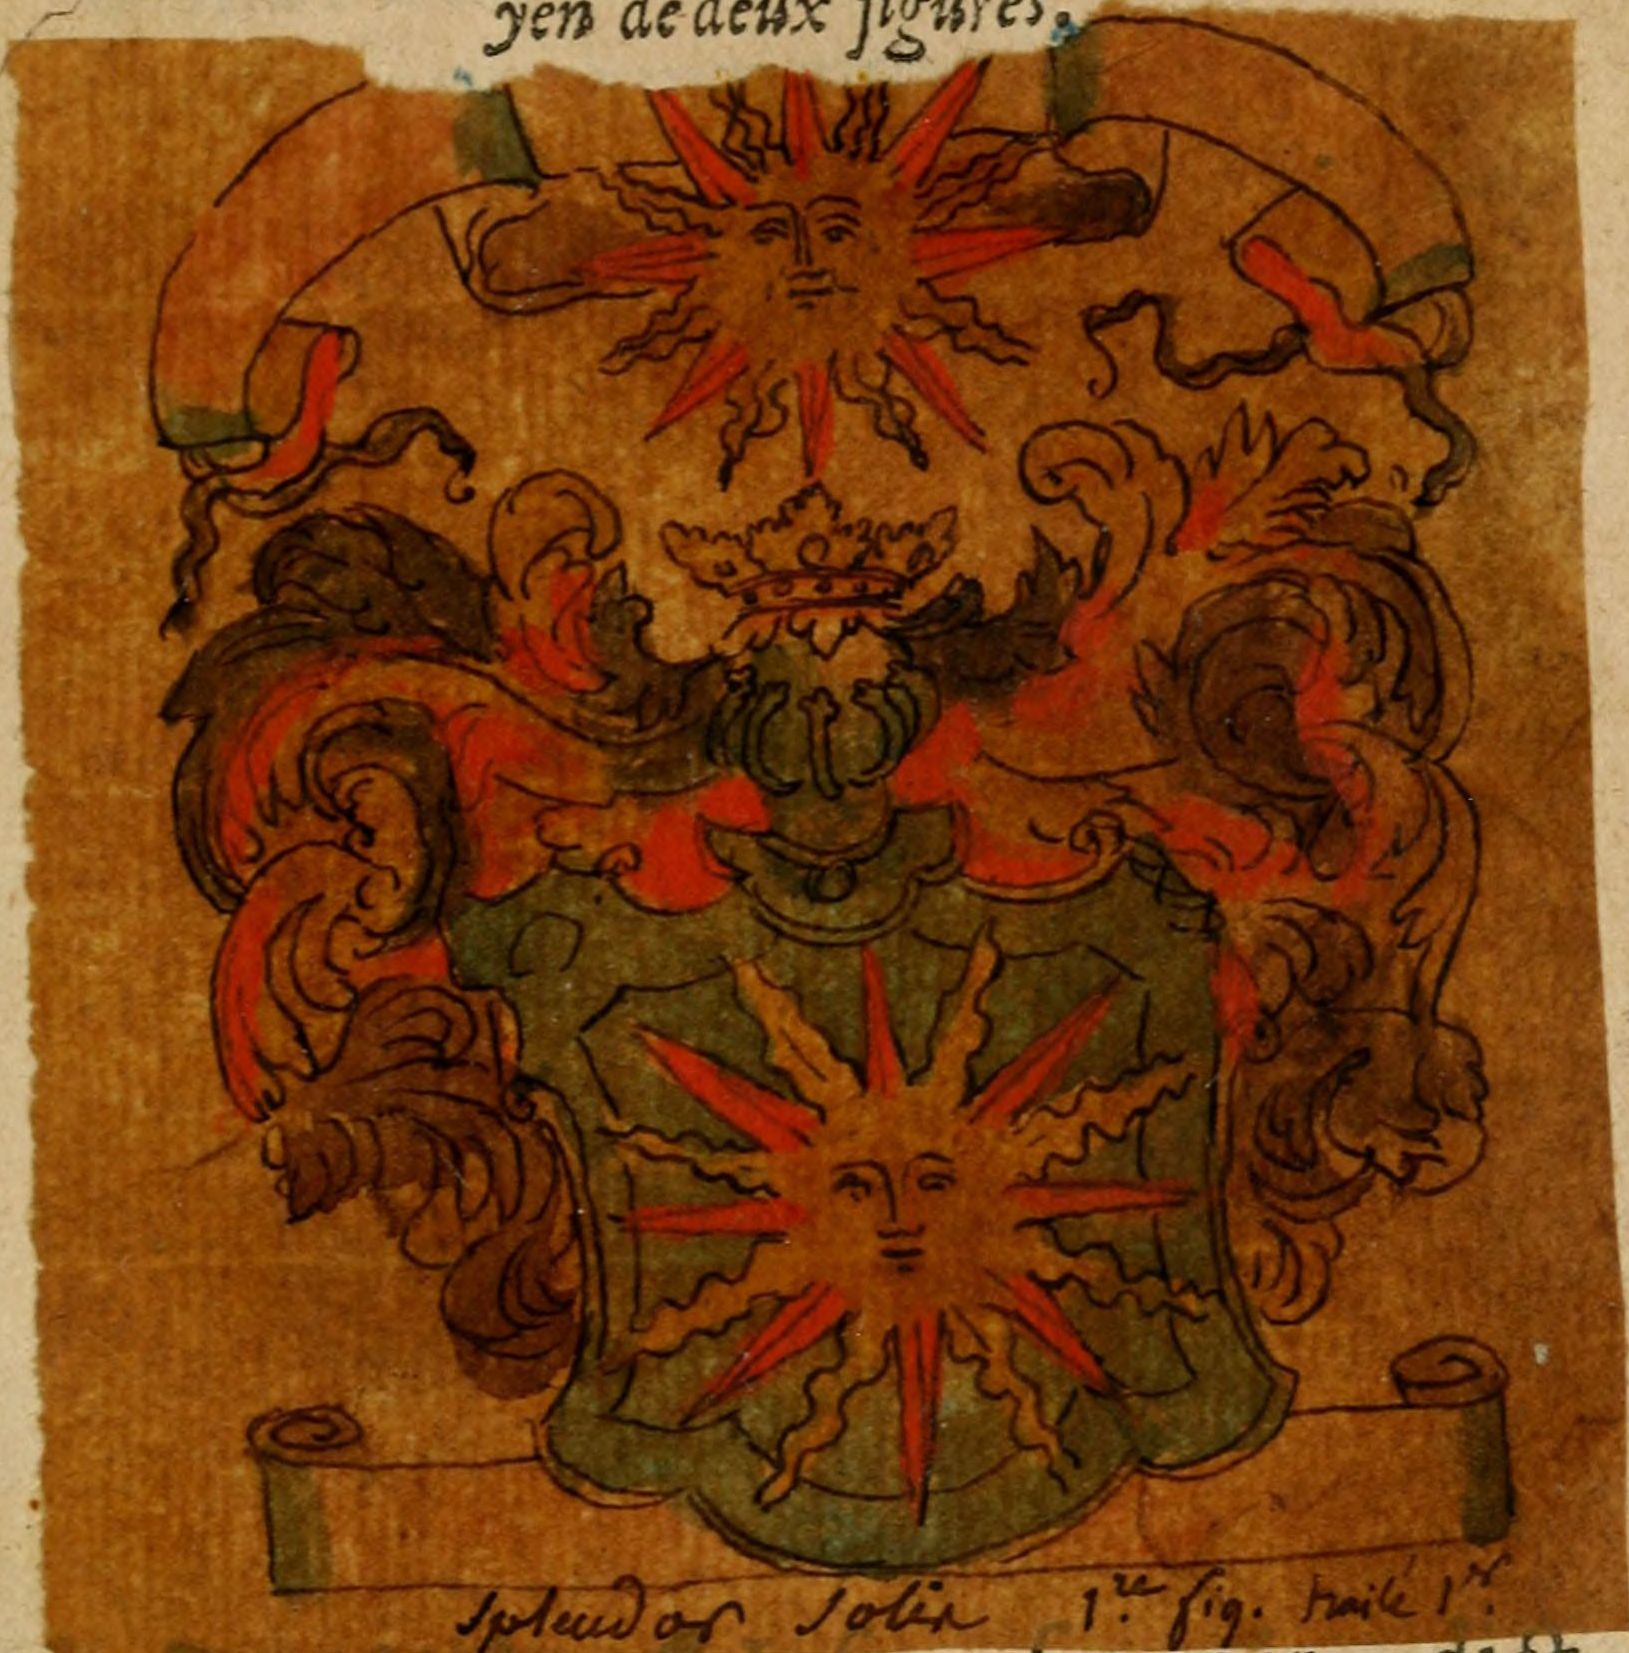 yen de deux figures.
Splendor Solis 1.re fig. traité 1.er